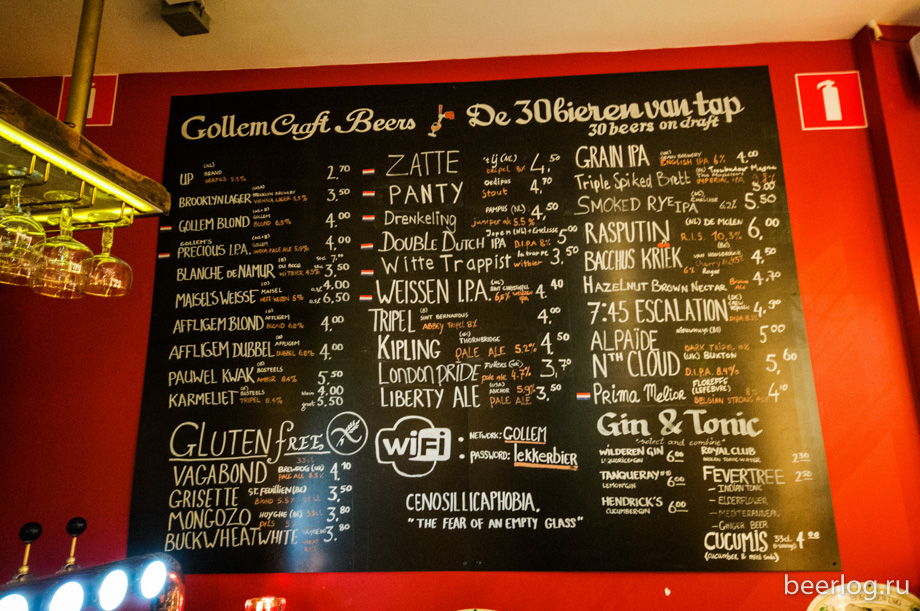 Gollem Craft Beers
De 30 bieren van tap
30 beers on draft
UP BRAND 5.5% 2,70
BROOKLYN LAGER BROOKLYN BREWERY VIENNA LAGER 5.5% 3,50
GOLLEM BLOND GOLLEM BLOND 6.5% 4,00
GOLLEM'S PRECIOUS I.P.A. GOLLEM INDIA PALE ALE 5.9% 4,00
BLANCHE DE NAMUR WITBIER 4.5% 3,50
MAISEL'S WEISSE MAISEL 4,00 6,50
AFFLIGEM BLOND AFFLIGEM BLOND 6.8% 4,00
AFFLIGEM DUBBEL AFFLIGEM DUBBEL 6.8% 4,00
PAUWEL KWAK BOSTEELS AMBER 8.4% 5,50
KARMELIET BOSTEELS TRIPEL 8.4% klein 4,00 groot 5,50
ZATTE 't IJ (NL) TRIPEL 8% 4,50
PANTY Oedipus Stout 4,70
Drenkeling PAMPUS (NL) 5.5% 4,50
DOUBLE DUTCH IPA Jopen (NL) + Emelisse D.I.PA 8% 5,00
Witte Trappist La Trappe witbier 3,50
WEISSEN I.P.A. 4,40
TRIPEL SINT BERNARDUS ABBEY TRIPEL 8% 4,00
KIPLING THORNBRIDGE PALE ALE 5.2% 4,50
LONDON PRIDE FULLERS (UK) pale ale 4.7% 3,70
LIBERTY ALE ANCHOR 5.9% PALE ALE 3,50
GRAIN IPA GRAIN BREWERY ENGLISH IPA 6% 4,00
Triple Spiked Brett The Musketeers IMPERIAL 5,00
SMOKED RYE IPA Emelisse 5,50
RASPUTIN (NL) DE MOLEN R.I.S. 10,3% 6,00
BACCHUS KRIEK VAN HONSEBROUCK 4,50
HAZELNUT BROWN NECTAR Rogue BROWN Ale 4,70
7:45 ESCALATION 4,90
ALPAÏDE NIEUWHUYS (B) DARK TRIPEL 5,00
NTH CLOUD (UK) BUXTON D.I.P.A. 8,4% 5,60
Prima Melior FLOREFFE (LEFEBVRE) BELGIAN STRONG ALE 4,10
GLUTEN free
VAGABOND BREWDOG PALE ALE 4,10
GRISETTE ST. FEUILLIEN (BE) BLOND 5.5% 3,50
MONGOZO HUYGHE (B) PILS 5% 3,80
BUCKWHEAT WHITE 3,80
WiFi : NETWORK: GOLLEM
PASSWORD: lekkerbier
CENOSILLICAPHOBIA,
"THE FEAR OF AN EMPTY GLASS"
Gin & Tonic
"select and combine"
WILDEREN GIN 6,00
TANQUERAY LEMON GIN 6,00
HENDRICK'S CUCUMBER GIN 6,00
ROYAL CLUB
FEVERTREE 2,50
- INDIAN TONIC
- ELDERFLOWER
- MEDITERRANEAN
- GINGER BEER
CUCUMIS 33cl. 4,00
beerlog.ru